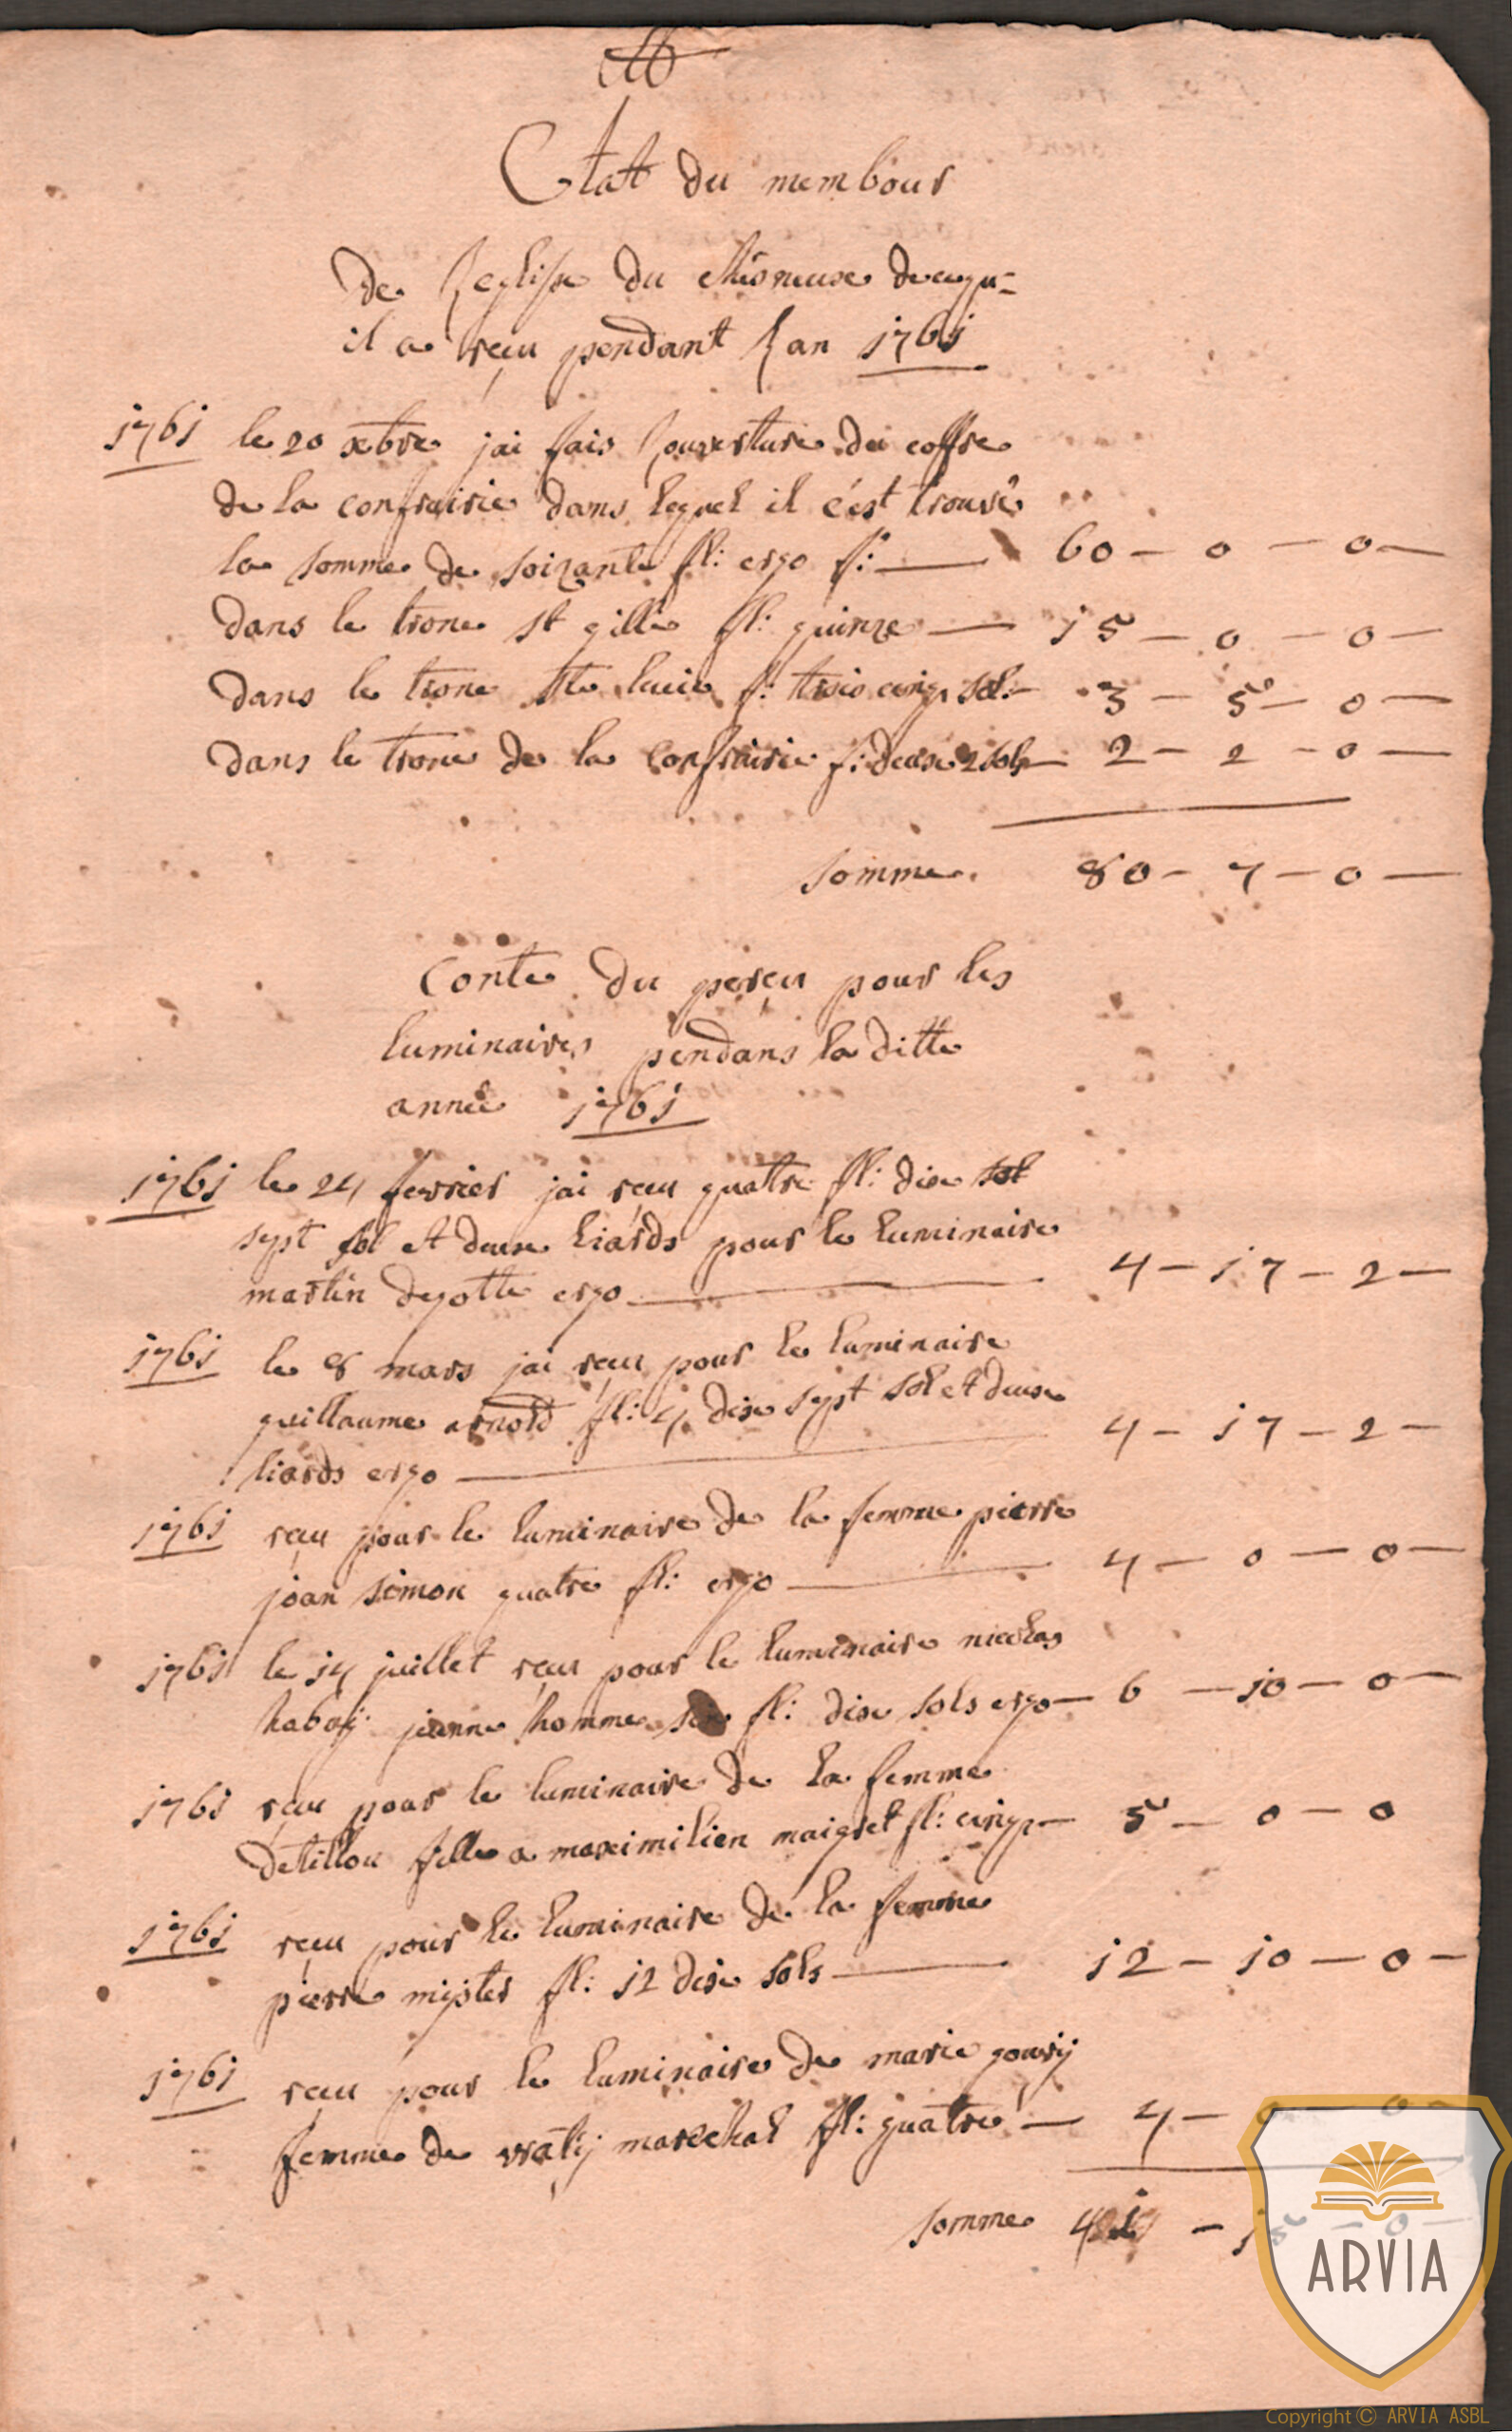 Etatt du membour
De l eglisse du chesneuse de cequ=
il a reçu pendant l an 1761
1761 le 20 xbre jai fais l ouverture du coffre
de la confrairie dans lequel il c'est trouvé
la somme de soixante fl: ergo f: — 60 — 0 — 0 —
dans le trone st gille fl: quinze — 15 — 0 — 0 —
dans le trone ste lucie f: trois cinq sol: — 3 — 5 — 0 —
dans le trone de la confrairie f: deux 2 sols — 2 — 2 — 0 —
somme. 80 — 7 — 0 —
Conte du perçu pour les
luminaires pendans la ditte
année 1761
1761 le 24 fevrier jai reçu quatre fl: dix sol
sept sol et deux liards pour le luminaire
martin deyotte ergo — 4 — 17 — 2 —
1761 le 8 mars jai reçu pour le luminaire
guillaume arnold fl: 4 dix sept sol et deux
liards ergo — 4 — 17 — 2 —
1761 reçu pour le luminaire de la femme pierre
joan simon quatre fl: ergo — 4 — 0 — 0 —
1761 le 14 juillet reçu pour le luminaire nicolas
habaÿ jeunne homme fl: dix sols ergo — 6 — 10 — 0 —
1761 reçu pour le luminaire de la femme
detillou fille a maximilien maigret fl: cinq — 5 — 0 — 0
1761 reçu pour le luminaire de la femme
pierre fl: 12 dix sols — 12 — 10 — 0 —
1761 reçu pour le luminaire de marie gourÿ
femme de marechal fl: quatre — 4 — 0 — 0 —
somme
ARVIA
Copyright © ARVIA ASBL